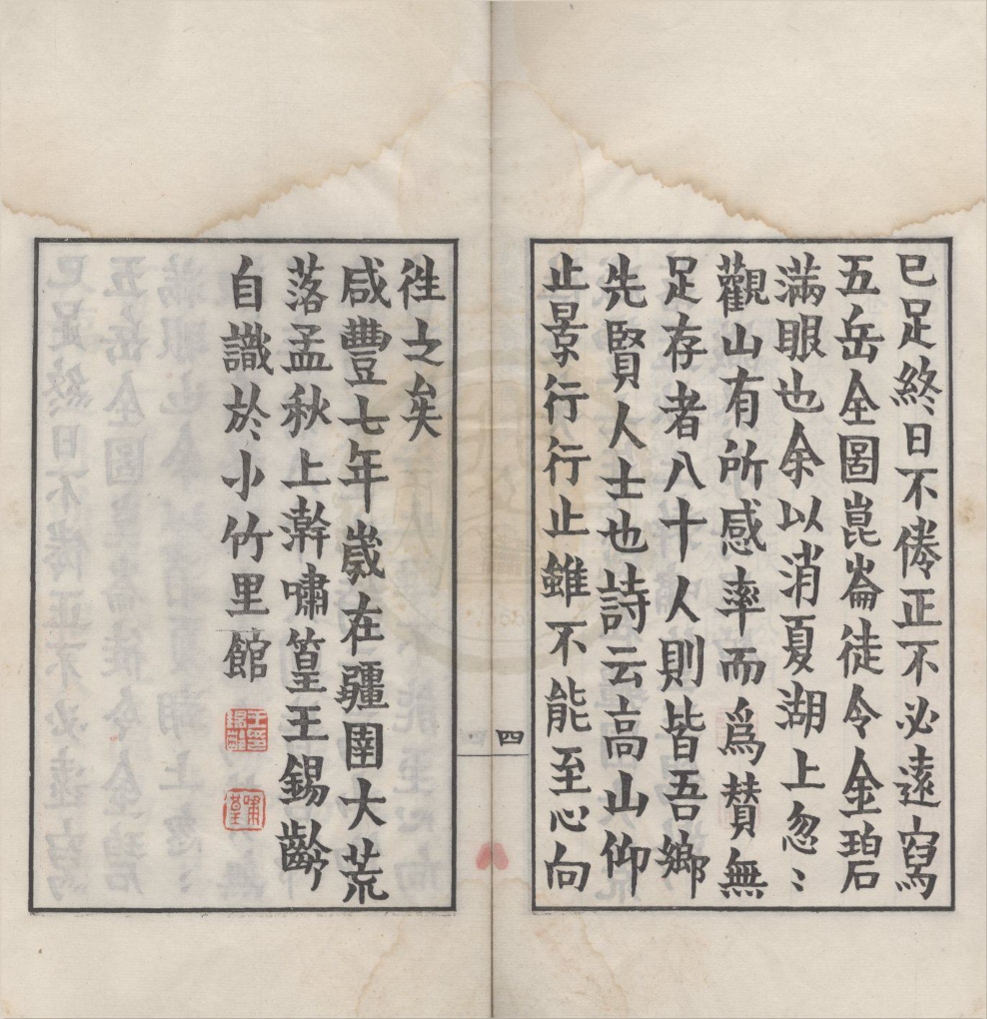 已足終日不倦正不必遠寫
五岳全圖崑崙徒令金碧
滿眼也余以消夏湖上忽〻
觀山有所感率而爲贊無
足存者八十人則皆吾鄉
先賢人士也詩云高山仰
止景行行止雖不能至心向
四
徃之矣
咸豐七年歲在疆圉大荒
落孟秋上澣嘯篁王錫齡
自識於小竹里館
王印錫齡
嘯篁